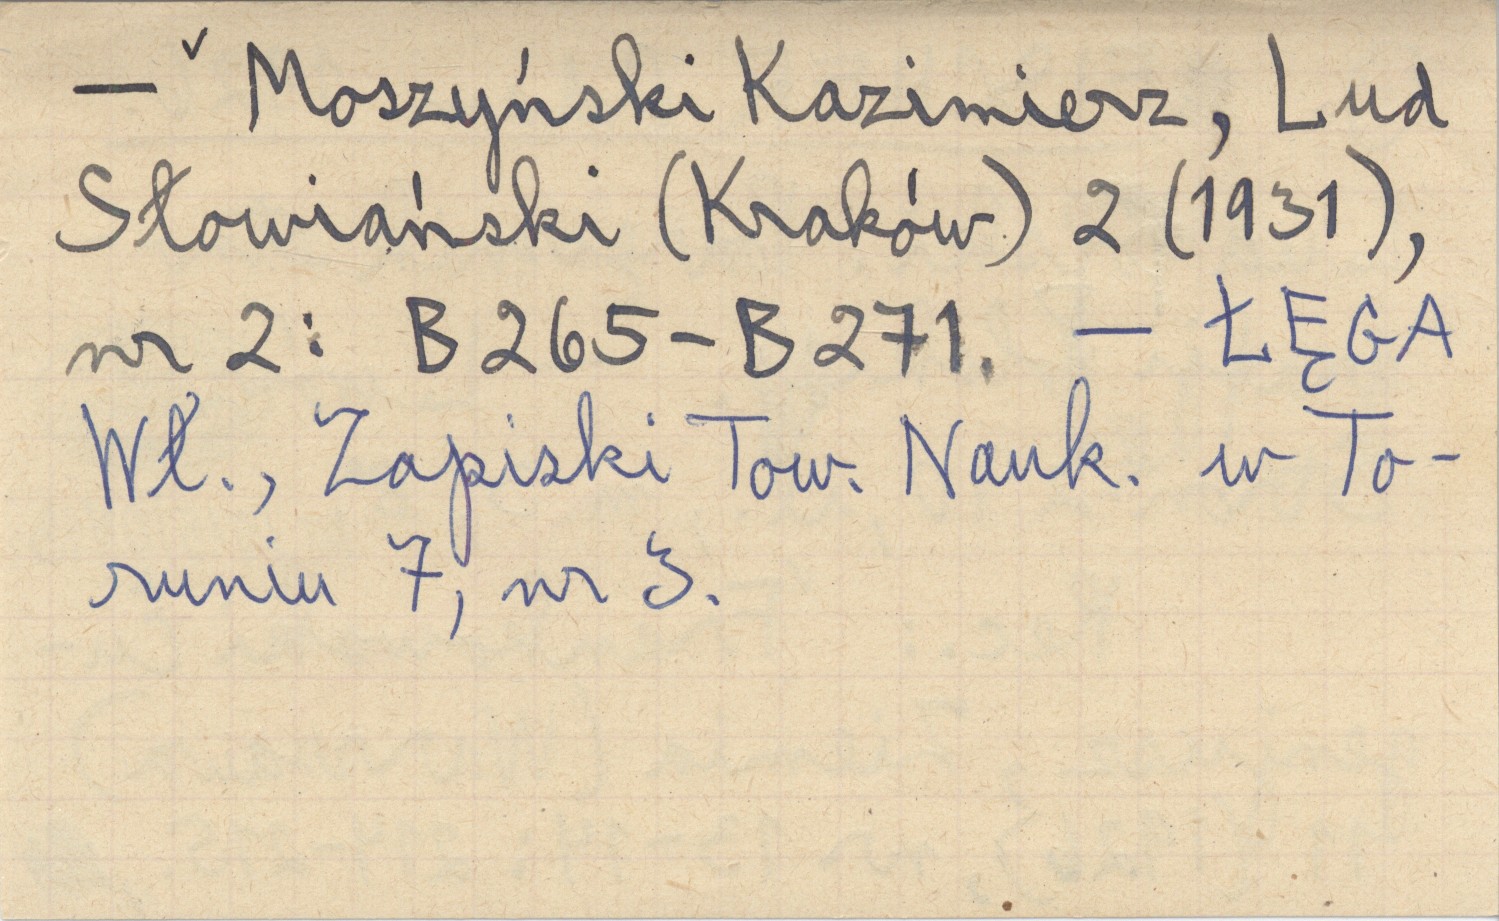 — ✓ Moszyński Kazimierz, Lud
Słowiański (Kraków) 2 (1931),
nr 2: B 265-B 271. — ŁĘGA
Wł., Zapiski Tow. Nauk. w To-
runiu 7, nr 3.